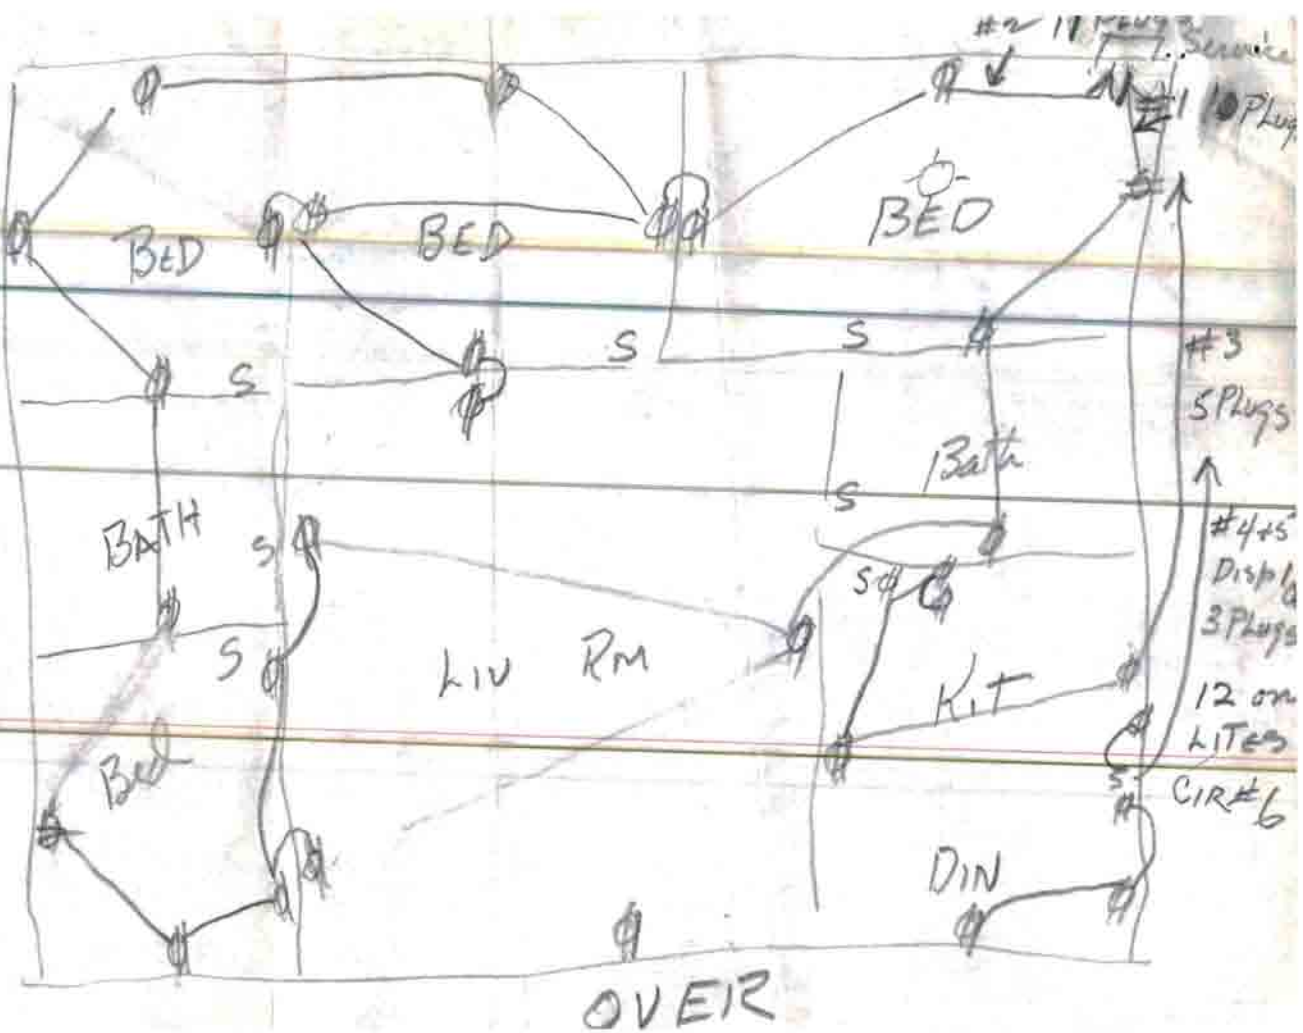 #2 11 PLUGS
Service
#1 10 PLug
BED
BED
BED
S
S
S
#3
5 PLugs
Bath
S
BATH
S
#4+5
Displ
3 PLugs
S
S
LIV RM
KIT
12 on
LITES
Bed
S
CIR#6
DIN
OVER